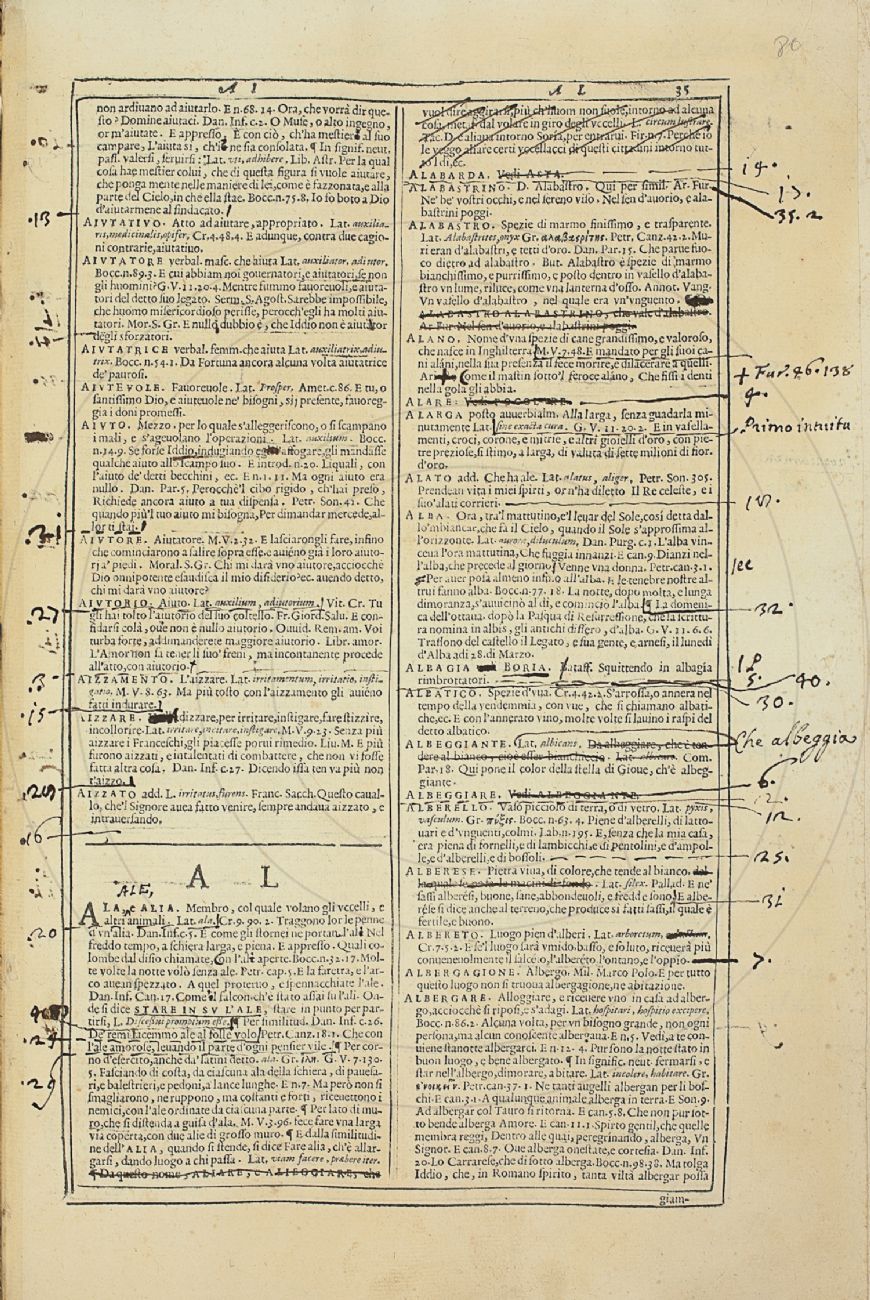 80
A I
A L
35
non ardiuano ad aiutarlo. E n.68.14. Ora, che vorrà dir que-
sto? Domine aiutaci. Dan. Inf.c.2. O Muse, o alto ingegno,
or m'aiutate. E appresso. E con ciò, ch'ha mestiere al suo
campare, L'aiuta si, ch'i ne sia consolata. ¶ In signif. neut.
pass. valersi, seruirsi: Lat. vti, adhibere. Lib. Astr. Per la qual
cosa hae mestier colui, che di questa figura si vuole aiutare,
che ponga mente nelle maniere di lei, come è fazzonata, e alla
parte del Cielo, in che ella stae. Bocc.n.75.8. Io fo boto a Dio
d'aiutarmene al sindacato.
.13
AIVTATIVO. Atto ad aiutare, appropriato. Lat. auxilia-
ris, medicinalis, opifer, Cr.4.48.4. E adunque, contra due cagio-
ni contrarie, aiutatiuo.
AIVTATORE verbal. masc. che aiuta Lat. auxiliator, adiutor.
Bocc.n.89.3. E cui abbiam noi gouernatori, e aiutatori, se non
gli huomini? G.V.11.20.4. Mentre fummo fauoreuoli, e aiuta-
tori del detto suo legato. Serm. S. Agost. Sarebbe impossibile,
che huomo misericordioso perisse, perocch'egli ha molti aiu-
tatori. Mor. S. Gr. E nullo dubbio è, che Iddio non è aiutator
degli sforzatori.
AIVTATRICE verbal. femm. che aiuta Lat. auxiliatrix, adiu-
trix. Bocc. n.54.1. Da Fortuna ancora alcuna volta aiutatrice
de' paurosi.
AIVTEVOLE. Fauoreuole. Lat. Prosper. Amet.c.86. E tu, o
santissimo Dio, e aiuteuole ne' bisogni, sij presente, fauoreg-
gia i doni promessi.
AIVTO. Mezzo. per lo quale s'alleggeriscono, o si scampano
i mali, e s'ageuolano l'operazioni. Lat. auxilium. Bocc.
n.14.9. Se forse Iddio, indugiando egli l'affogare, gli mandasse
qualche aiuto allo scampo suo. E introd.n.20. Li quali, con
l'aiuto de' detti becchini, ec. E n.1.11. Ma ogni aiuto era
nullo. Dan. Par.5. Perocchè'l cibo rigido, ch'hai preso,
Richiede ancora aiuto a tua dispensa. Petr. Son.42. Che
quando più'l tuo aiuto mi bisogna, Per dimandar mercede, al-
lor ti stai.
.31
AIVTORE. Aiutatore. M.V.2.32. E lasciarongli fare, infino
che cominciarono a salire sopra esse, e auieno già i loro aiuto-
ri a' piedi. Moral. S. Gr. Chi mi darà vno aiutore, acciocchè
Dio onnipotente esaudisca il mio disiderio? ec. auendo detto,
chi mi darà vno aiutore?
.27
AIVTORIO. Aiuto. Lat. auxilium, adiutorium. Vit. Cr. Tu
gli hai tolto l'aiutorio del suo coltello. Fr. Giord. Salu. E con-
fidarsi colà, oue non è nullo aiutorio. Ouuid. Rem. am. Voi
turba forte, addimanderete maggiore aiutorio. Libr. amor.
L'Amor non sa tenerli suo' freni, ma incontanente procede
all'atto, con aiutorio.
.3
AIZZAMENTO. L'aizzare. Lat. irritamentum, irritatio, insti-
gatio. M.V.8.63. Ma più tosto con l'aizzamento gli auieno
fatti indurare.
.15
AIZZARE. dizzare, per irritare, instigare, fare stizzire,
incollorire. Lat. irritare, incitare, instigare. M.V.9.23. Senza più
aizzare i Franceschi, gli piacesse porui rimedio. Liu. M. E più
furono aizzati, e intalentati di combattere, che non vi fosse
fatta altra cosa. Dan. Inf.c.27. Dicendo issa ten va più non
t'aizzo.
AIZZATO add. L. irritatus, furens. Franc. Sacch. Questo caual-
lo, che'l Signore auea fatto venire, sempre andaua aizzato, e
intrauersando.
.16
A L
ALE,
ALA, e ALIA. Membro, col quale volano gli vccelli, e
altri animali. Lat. ala. Cr.9.90.2. Traggono lor le penne
d'vn'alia. Dan. Inf.c.5. E come gli stornei ne portan l'ali Nel
.20
freddo tempo, a schiera larga, e piena. E appresso. Quali co-
lombe dal disio chiamate, Con l'ali aperte. Bocc.n.32.17. Mol-
te volte la notte volò senza ale. Petr. cap.5. E la faretra, e l'ar-
co auean spezzato. A quel proteruo, e spennacchiate l'ale.
Dan. Inf. Can.17. Come'l falcon ch'è stato assai su l'ali. On-
de si dice STARE IN SV L'ALE, stare in punto per par-
tirsi, L. Discessui promptum esse. ¶ Per similitud. Dan. Inf. c.26.
De' remi facemmo ale al folle volo. Petr. Canz.18.1. Che con
l'ale amorose, leuando il parte d'ogni pensier vile. ¶ Per cor-
no d'esercito, anche da' latini detto. ala. G.V.7.130.
5. Fasciando di costa, da ciascuna ala della schiera, di pauesa-
ri, e balestrieri, e pedoni, a lance lunghe. E n.7. Ma però non si
smagliarono, ne ruppono, ma costanti e forti, riceuettono i
nemici, con l'ale ordinate da ciascuna parte. ¶ Per lato di mu-
ro, che si distenda a guisa d'ala. M.V.3.96. fece fare vna larga
via coperta, con due alie di grosso muro. ¶ E dalla similitudi-
ne dell'ALIA, quando si stende, si dice Fare alia, ch'è allar-
garsi, dando luogo a chi passa. Lat. viam facere, præbere iter.
¶ Da questo nome, ALIARE, e ALIEGGIARE, che
vuol dire aggirarsi, più ch'huom non suole, intorno ad alcuna
cosa, met. dal volare in giro degli vccelli. L. circumlustrare.
Tac. D. c. aliana intorno Soria, per entrarui. Fir. n.7. Perchè io
le veggo aliare certi vccellacci di questi cittadini intorno tut-
to l dì, ec.
ALABARDA. Vedi ASTA.
14.
ALABASTRINO. D. Alabastro. Qui per simil. Ar. Fur.
Ne' be' vostri occhi, e nel sereno viso. Nel sen d'auorio, e ala-
bastrini poggi.
17.
35.2
ALABASTRO. Spezie di marmo finissimo, e trasparente.
Lat. Alabastrites, onyx Gr. αλαβαςρίτης. Petr. Canz.42.2. Mu-
ri eran d'alabastri, e tetti d'oro. Dan. Par.15. Che parue fuo-
co dietro ad alabastro. But. Alabastro è spezie di marmo
bianchissimo, e purissimo, e posto dentro in vasello d'alaba-
stro vn lume, riluce, come vna lanterna d'osso. Annot. Vang.
Vn vasello d'alabastro, nel quale era vn'vnguento.
ALABASTRO ALABASTRINO, che vale d'alabastro.
Ar. Fur. Nel sen d'auorio, e alabastrini poggi.
ALANO. Nome d'vna spezie di cane grandissimo, e valoroso,
che nasce in Inghilterra. M.V.7.48. E mandato per gli suoi ca-
ni alani, nella sua presenza il fece morire, e dilacerare a quelli.
Ar. Come il mastin sotto'l feroce alano, Che fissi i denti
nella gola gli abbia.
+ Fur. 46.138
ALARE. Vedi FOCOLARE.
9.
ALARGA posto auuerbialm. Alla larga, senza guardarla mi-
nutamente Lat. sine exacta cura. G.V.11.20.2. E in vasella-
menti, croci, corone, e mitrie, e altri gioielli d'oro, con pie-
tre preziose, si stimò, a larga, di valuta di sette milioni di fior.
d'oro.
Primo intuitu
ALATO add. Che ha ale. Lat. alatus, aliger, Petr. Son.305.
Prendean vita i miei spirti, or n'ha diletto Il Re celeste, e i
suo' alati corrieri.
ALBA. Ora, tra'l mattutino, e'l leuar del Sole, così detta dal-
lo'mbiancar, che fa il Cielo, quando il Sole s'approssima al-
l'orizzonte. Lat. aurora, diluculum, Dan. Purg. c.1. L'alba vin-
ceua l'ora mattutina, Che fuggia innanzi. E can.9. Dianzi nel-
l'alba, che precede al giorno, Venne vna donna. Petr.can.3.1.
Per auer posa almeno infino all'alba. E le tenebre nostre al-
trui fanno alba. Bocc.n.77.18. La notte, dopo molta, e lunga
dimoranza, s'auuicinò al dì, e cominciò l'alba. ¶ La domeni-
ca dell'ottaua, dopo la Pasqua di Resurressione, che la scrittu-
ra nomina in albis, gli antichi dissero, d'alba. G.V.11.6.6.
Trassono del castello il Legato, e sua gente, e arnesi, il lunedì
d'Alba a dì 28. di Marzo.
32.
ALBAGIA BORIA. Pataff. Squittendo in albagia
rimbrottatori.
5.
40.
30.
ALBATICO. Spezie d'vua. Cr.4.42.2. S'arrossa, o annera nel
tempo della vendemmia, con vue, che si chiamano albati-
che, ec. E con l'annerato vino, molte volte si lauino i raspi del
detto albatico.
ALBEGGIANTE. Lat. albicans. Da albeggiare, che è ten-
dere al bianco, cioè esser biancheccio. Lat. albicare. Com.
Par.18. Qui pone il color della stella di Gioue, ch'è albeg-
giante.
Che albeggia
ALBEGGIARE. Vedi ALBEGGIANTE.
6.
ALBERELLO. Vaso picciolo di terra, o di vetro. Lat. pyxis,
vasculum. Gr. πύξις. Bocc.n.63.4. Piene d'alberelli, di lattou-
uari e d'vnguenti, colmi. Lab.n.195. E, senza che la mia casa,
era piena di fornelli, e di lambicchi, e di pentolini, e d'ampol-
le, e d'alberelli, e di bossoli.
12.
25.
ALBERESE. Pietra viua, di colore, che tende al bianco. dal-
la quale se fa le macini di fondo. Lat. silex. Pallad. E ne'
sassi alberesi, buone, sane, abbondeuoli, e fredde sono. E albe-
rese si dice anche al terreno, che produce si fatti sassi, il quale è
fertile, e buono.
31
ALBERETO. Luogo pien d'alberi. Lat. arboretum,
Cr.7.5.2. E se'l luogo sarà vmido, basso, e soluto, riceuerà più
conueneuolmente il salceto, l'albereto, l'ontano, e l'oppio.
7.
ALBERGAGIONE. Albergo. Mil. Marco Polo. E per tutto
questo luogo non si truoua albergagione, ne abitazione.
ALBERGARE. Alloggiare, e riceuere vno in casa ad alber-
go, acciocchè si riposi, e s'adagi. Lat. hospitari, hospitio excipere.
Bocc.n.86.2. Alcuna volta, per vn bisogno grande, non ogni
persona, ma alcun conoscente albergaua. E n.5. Vedi, a te con-
uiene stanotte albergarci. E n.12.4. Pur sono la notte stato in
buon luogo, e bene albergato. ¶ In signific. neut. fermarsi, e
star nell'albergo, dimorare, abitare. Lat. incolere, habitare. Gr.
Petr.can.37.1. Ne tanti augelli albergan per li bos-
chi. E can.3.1. A qualunque animale alberga in terra. E Son.9.
Ad albergar col Tauro si ritorna. E can.5.8. Che non pur sot-
to bende alberga Amore. E can.11.1. Spirto gentil, che quelle
membra reggi, Dentro alle quai, peregrinando, alberga, Vn
Signor. E can.8.7. Oue alberga onestate, e cortesia. Dan. Inf.
20. Lo Carrarese, che di sotto alberga. Bocc.n.98.38. Ma tolga
Iddio, che, in Romano spirito, tanta viltà albergar possa
giam-